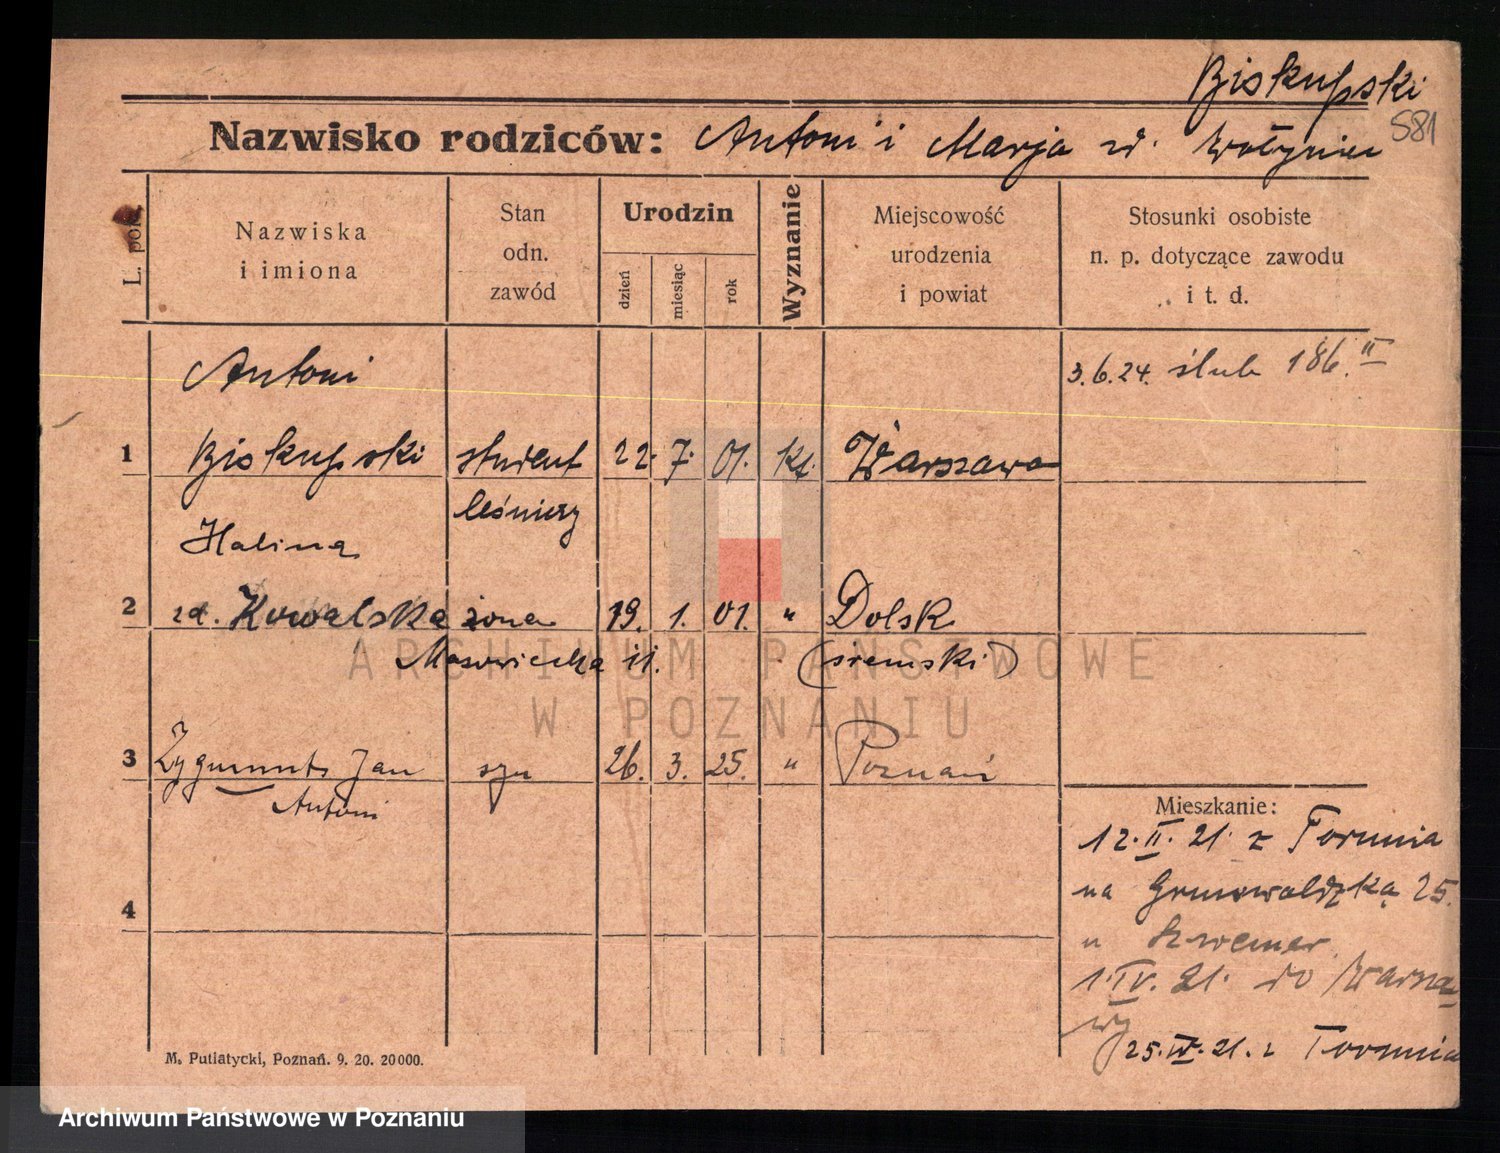 Biskupski
581
Nazwisko rodziców: Antoni i Marja zd. Wołyniec
L. pok.
Nazwiska
i imiona
Stan
odn.
zawód
Urodzin
dzień
miesiąc
rok
Wyznanie
Miejscowość
urodzenia
i powiat
Stosunki osobiste
n. p. dotyczące zawodu
i t. d.
Antoni
3.6.24. ślub 186.II
1 Biskupski student 22. 7. 01. kt. Warszawa
leśniczy
Halina
2 zd. Kowalska żona 19. 1. 01. " Dolsk
Mazowiecka (śremski)
3 Zygmunt Jan syn 26. 3. 25. " Poznań
Antoni
Mieszkanie:
12.II.21. z Torunia
na Grunwaldzką 25.
4
u
1.IV.21. do Warsza-
wy
25.IV.21. z Torunia
M. Putiatycki, Poznań. 9. 20. 20000.
ARCHIWUM PAŃSTWOWE
W POZNANIU
Archiwum Państwowe w Poznaniu